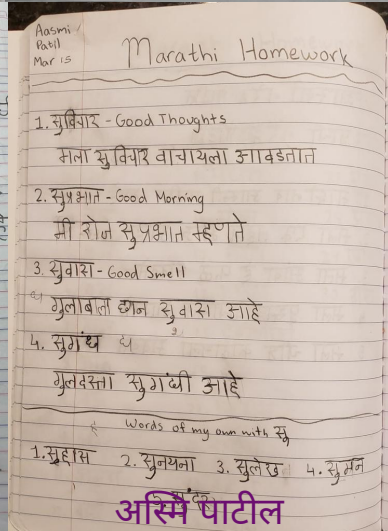 Aasmi
Patil
Mar 15
Marathi Homework
1. सुविचार - Good Thoughts
मला सुविचार वाचायला आवडतात
2. सुप्रभात - Good Morning
मी रोज सुप्रभात म्हणते
3. सुवास - Good Smell
गुलाबाला छान सुवास आहे
4. सुगंध ध
गुलदस्ता सुगंधी आहे
Words of my own with सु
1. सुहास 2. सुनयना 3. सुलेख 4. सुमन
अस्मि पाटील